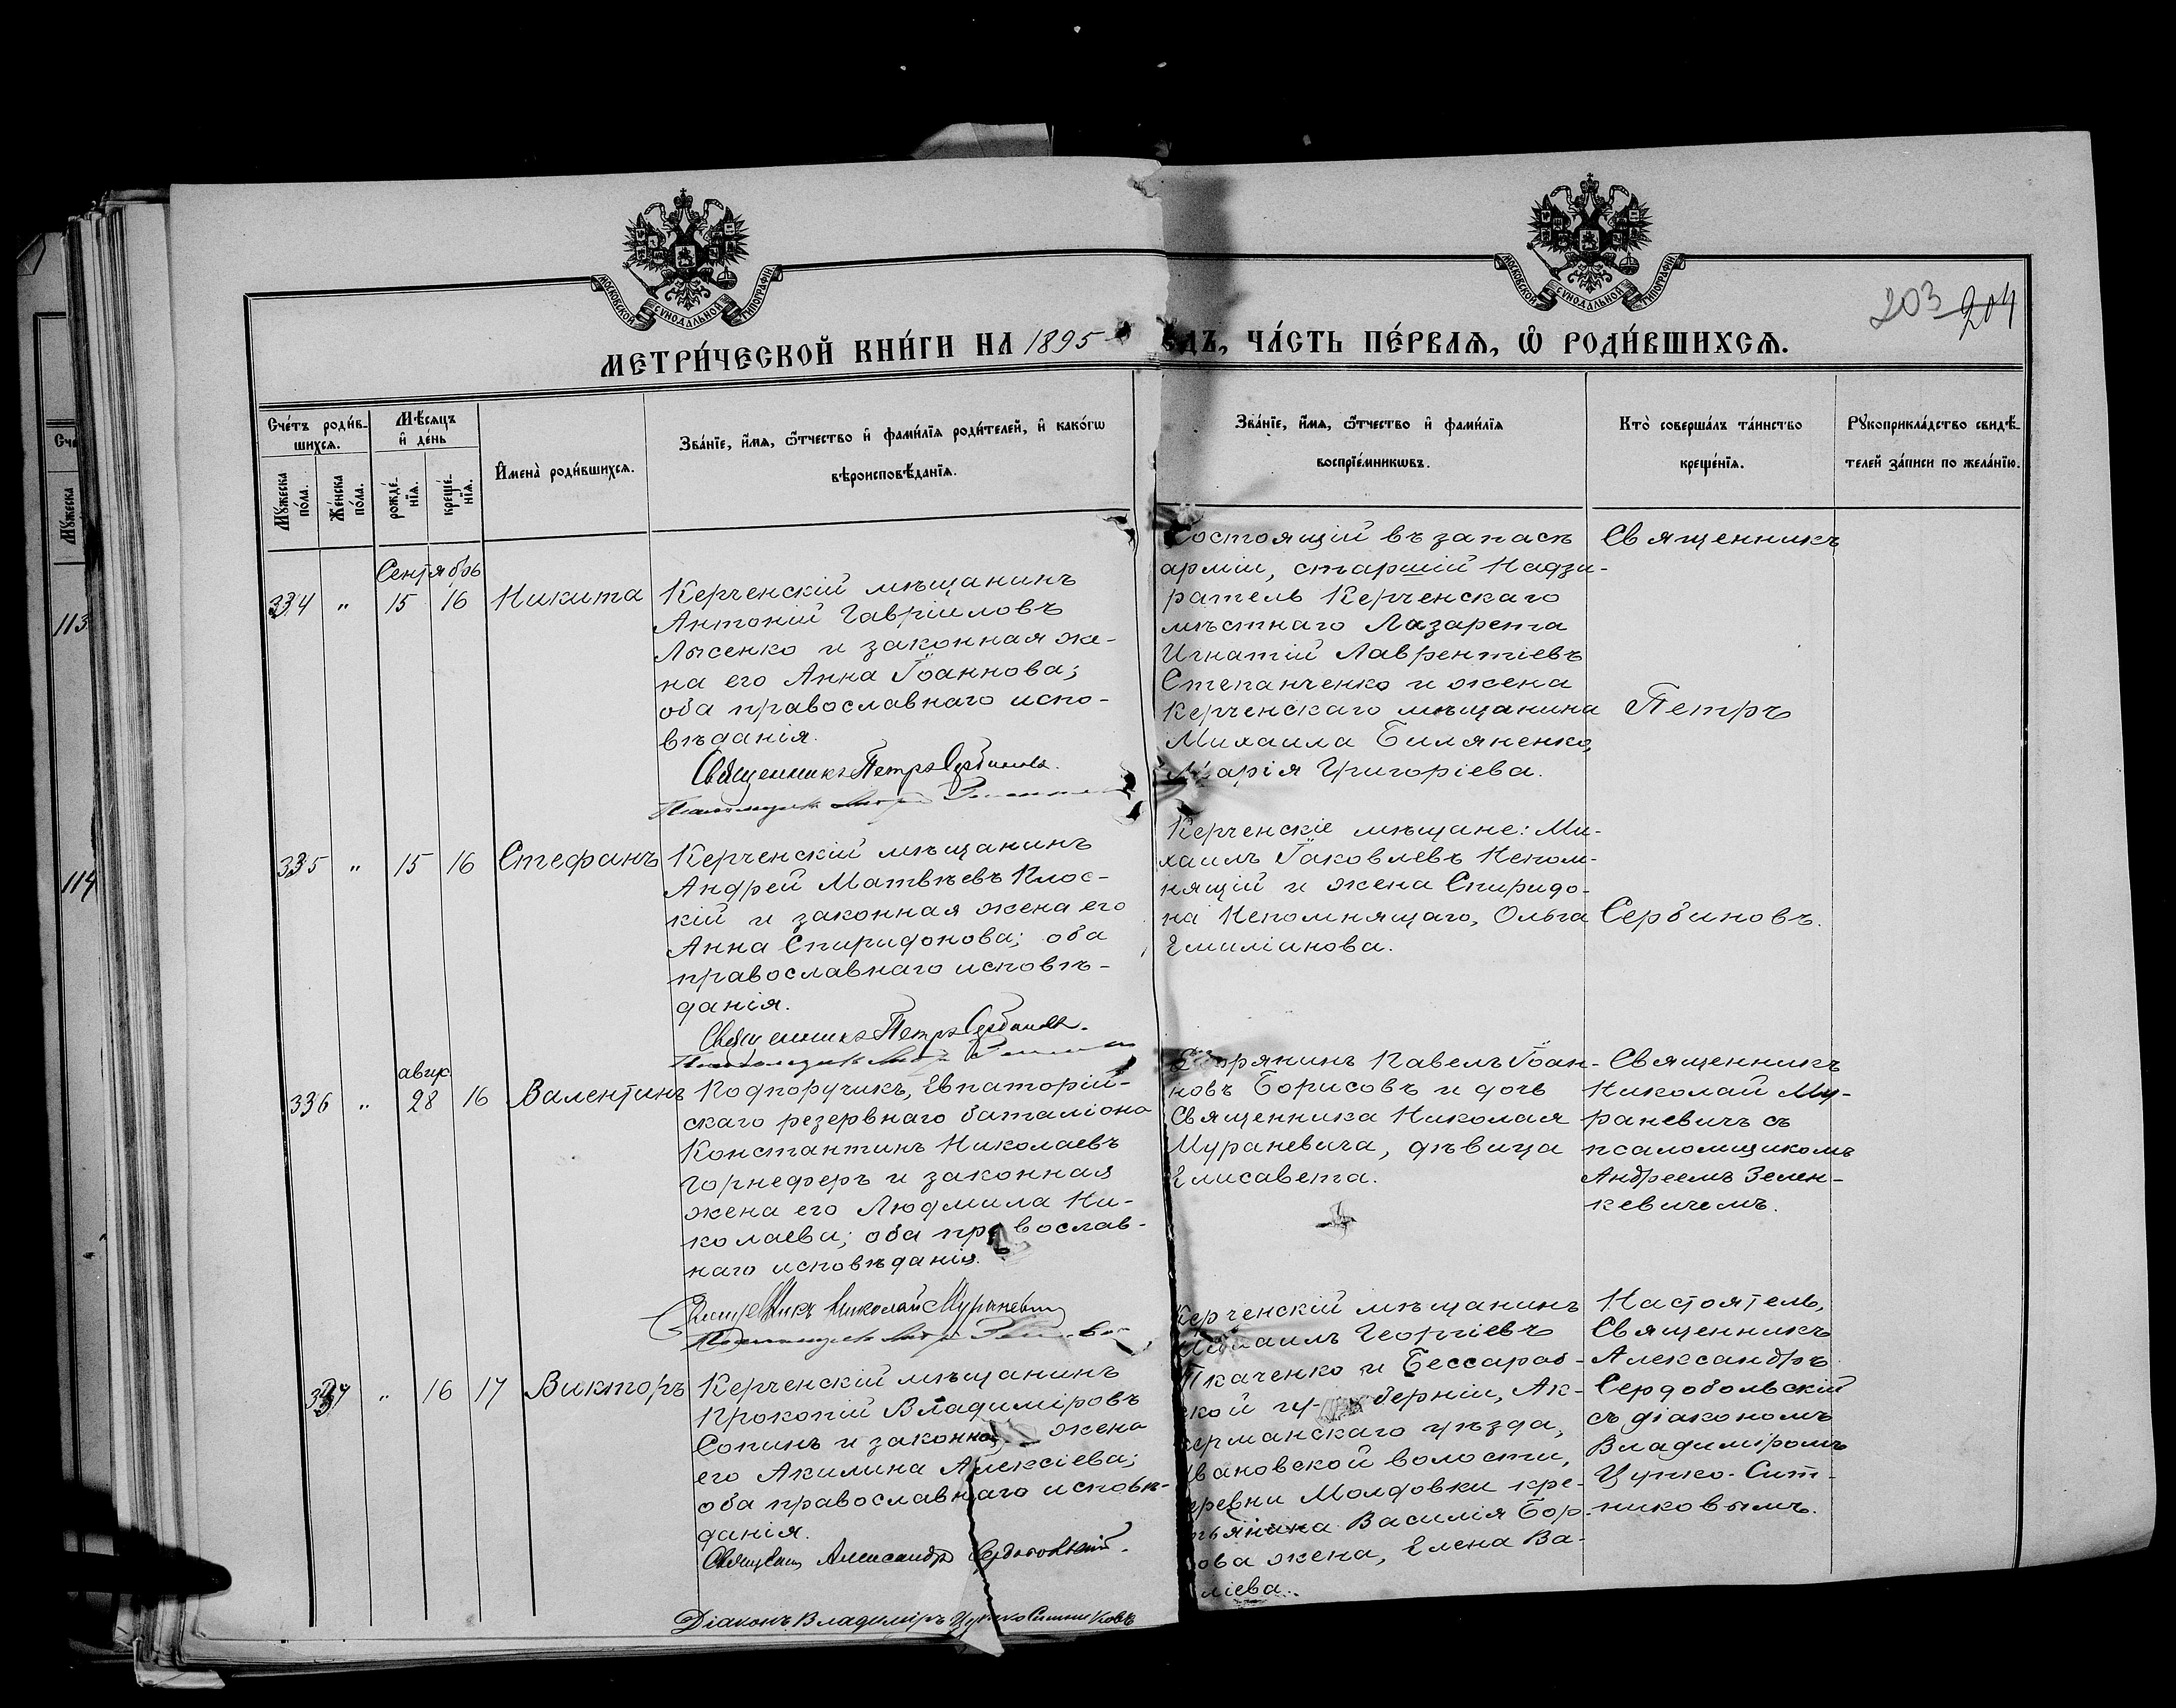 МОСКОВСКОЙ СѴНОДАЛЬНОЙ ТИПОГРАФІИ
МОСКОВСКОЙ СѴНОДАЛЬНОЙ ТИПОГРАФІИ
203 204
МЕТРИ́ЧЕСКОЙ КНИ́ГИ НА 1895
ДЪ, ЧА́СТЬ ПЕ́РВАѦ, Ѡ҆ РОДИ́ВШИХСѦ.
Сче́тъ роди́в-
шихсѧ.
Мꙋ́жеска по́ла.
Же́нска по́ла.
Мѣ́сѧцъ и҆ де́нь
рожде́-нїѧ.
креще́-нїѧ.
И҆мена̀ роди́вшихсѧ.
Зва́нїе, и҆́мѧ, ѻ҆́тчество и҆ фами́лїѧ роди́телей, и҆ како́гѡ
вѣроисповѣ́данїѧ.
Зва́нїе, и҆́мѧ, ѻ҆́тчество и҆ фами́лїѧ
воспрїе́мникѡвъ.
Кто̀ соверша́лъ та́инство
креще́нїѧ.
Рꙋкоприкла́дство свидѣ́-
телей за́писи по жела́нїю.
113
114
Сентябрь
334 " 15 16 Никита
Керченскій мѣщанинъ
Антоній Гавріиловъ
Лысенко и законная же-
на его Анна Іоаннова;
оба православнаго испо-
вѣданія.
Священникъ Петръ Сербиновъ.
Состоящій въ запасѣ
арміи, старшій Надзи-
ратель Керченскаго
мѣстнаго Лазарета
Игнатій Лаврентіевъ
Степанченко и жена
Керченскаго мѣщанина
Михаила Биляненко,
Марія Григоріева.
Священникъ
Петръ
335 " 15 16 Стефанъ
Керченскій мѣщанинъ
Андрей Матвѣевъ Плос-
кій и законная жена его
Анна Спиридонова; оба
православнаго исповѣ-
данія.
Священникъ Петръ Сербиновъ.
Керченскіе мѣщане: Ми-
хаилъ Іаковлевъ Непом-
нящій и жена Спиридо-
на Непомнящаго, Ольга
Емиліанова.
Сербиновъ.
авгус
336 " 28 16 Валентинъ
Подпоручикъ, Евпаторій-
скаго резервнаго баталіона
Константинъ Николаевъ
Горнеферъ и законная
жена его Людмила Ни-
колаева; оба православ-
наго исповѣданія.
Священникъ Николай Мураневичъ
Дворянинъ Павелъ Іоан-
новъ Борисовъ и дочь
Священника Николая
Мураневича, дѣвица
Елисавета.
Священникъ
Николай Му-
раневичъ съ
псаломщикомъ
Андреемъ Зелен-
кевичемъ.
337 " 16 17 Викторъ
Керченскій мѣщанинъ
Прокопій Владиміровъ
Сопинъ и законная жена
его Акилина Алексіева;
оба православнаго исповѣ-
данія.
Священ. Александръ Сердобольскій.
Діаконъ Владиміръ Цурко-Ситниковъ
Керченскій мѣщанинъ
Михаилъ Георгіевъ
Ткаченко и Бессараб-
ской губерніи, Ак-
керманскаго уѣзда,
Ивановской волости,
деревни Молдовки кре-
стьянина Василія Бор-
ова жена, Елена Ва-
силіева.
Настоятель,
Священникъ
Александръ
Сердобольскій
съ діакономъ
Владиміромъ
Цурко-Сит-
никовымъ.